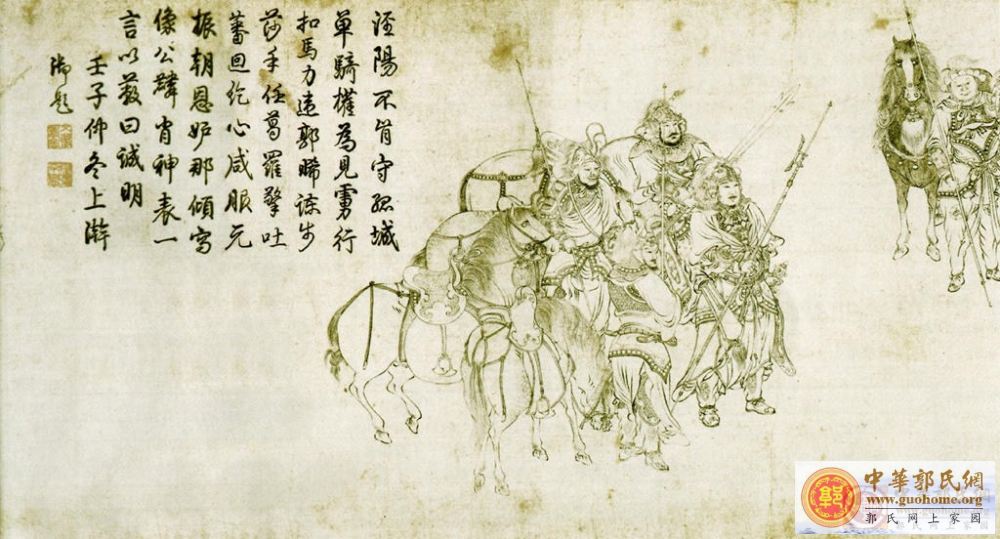 涇陽不肯守孤城
單騎權為見虜行
扣馬力違郭晞諫步
莎手任葛羅擎吐
蕃回紇心咸服元
振朝恩妒那傾寫
像公麟肖神表一
言以蔽曰誠明
壬子仲冬上澣
御題
中華郭氏網
www.guohome.org
郭氏网上家园